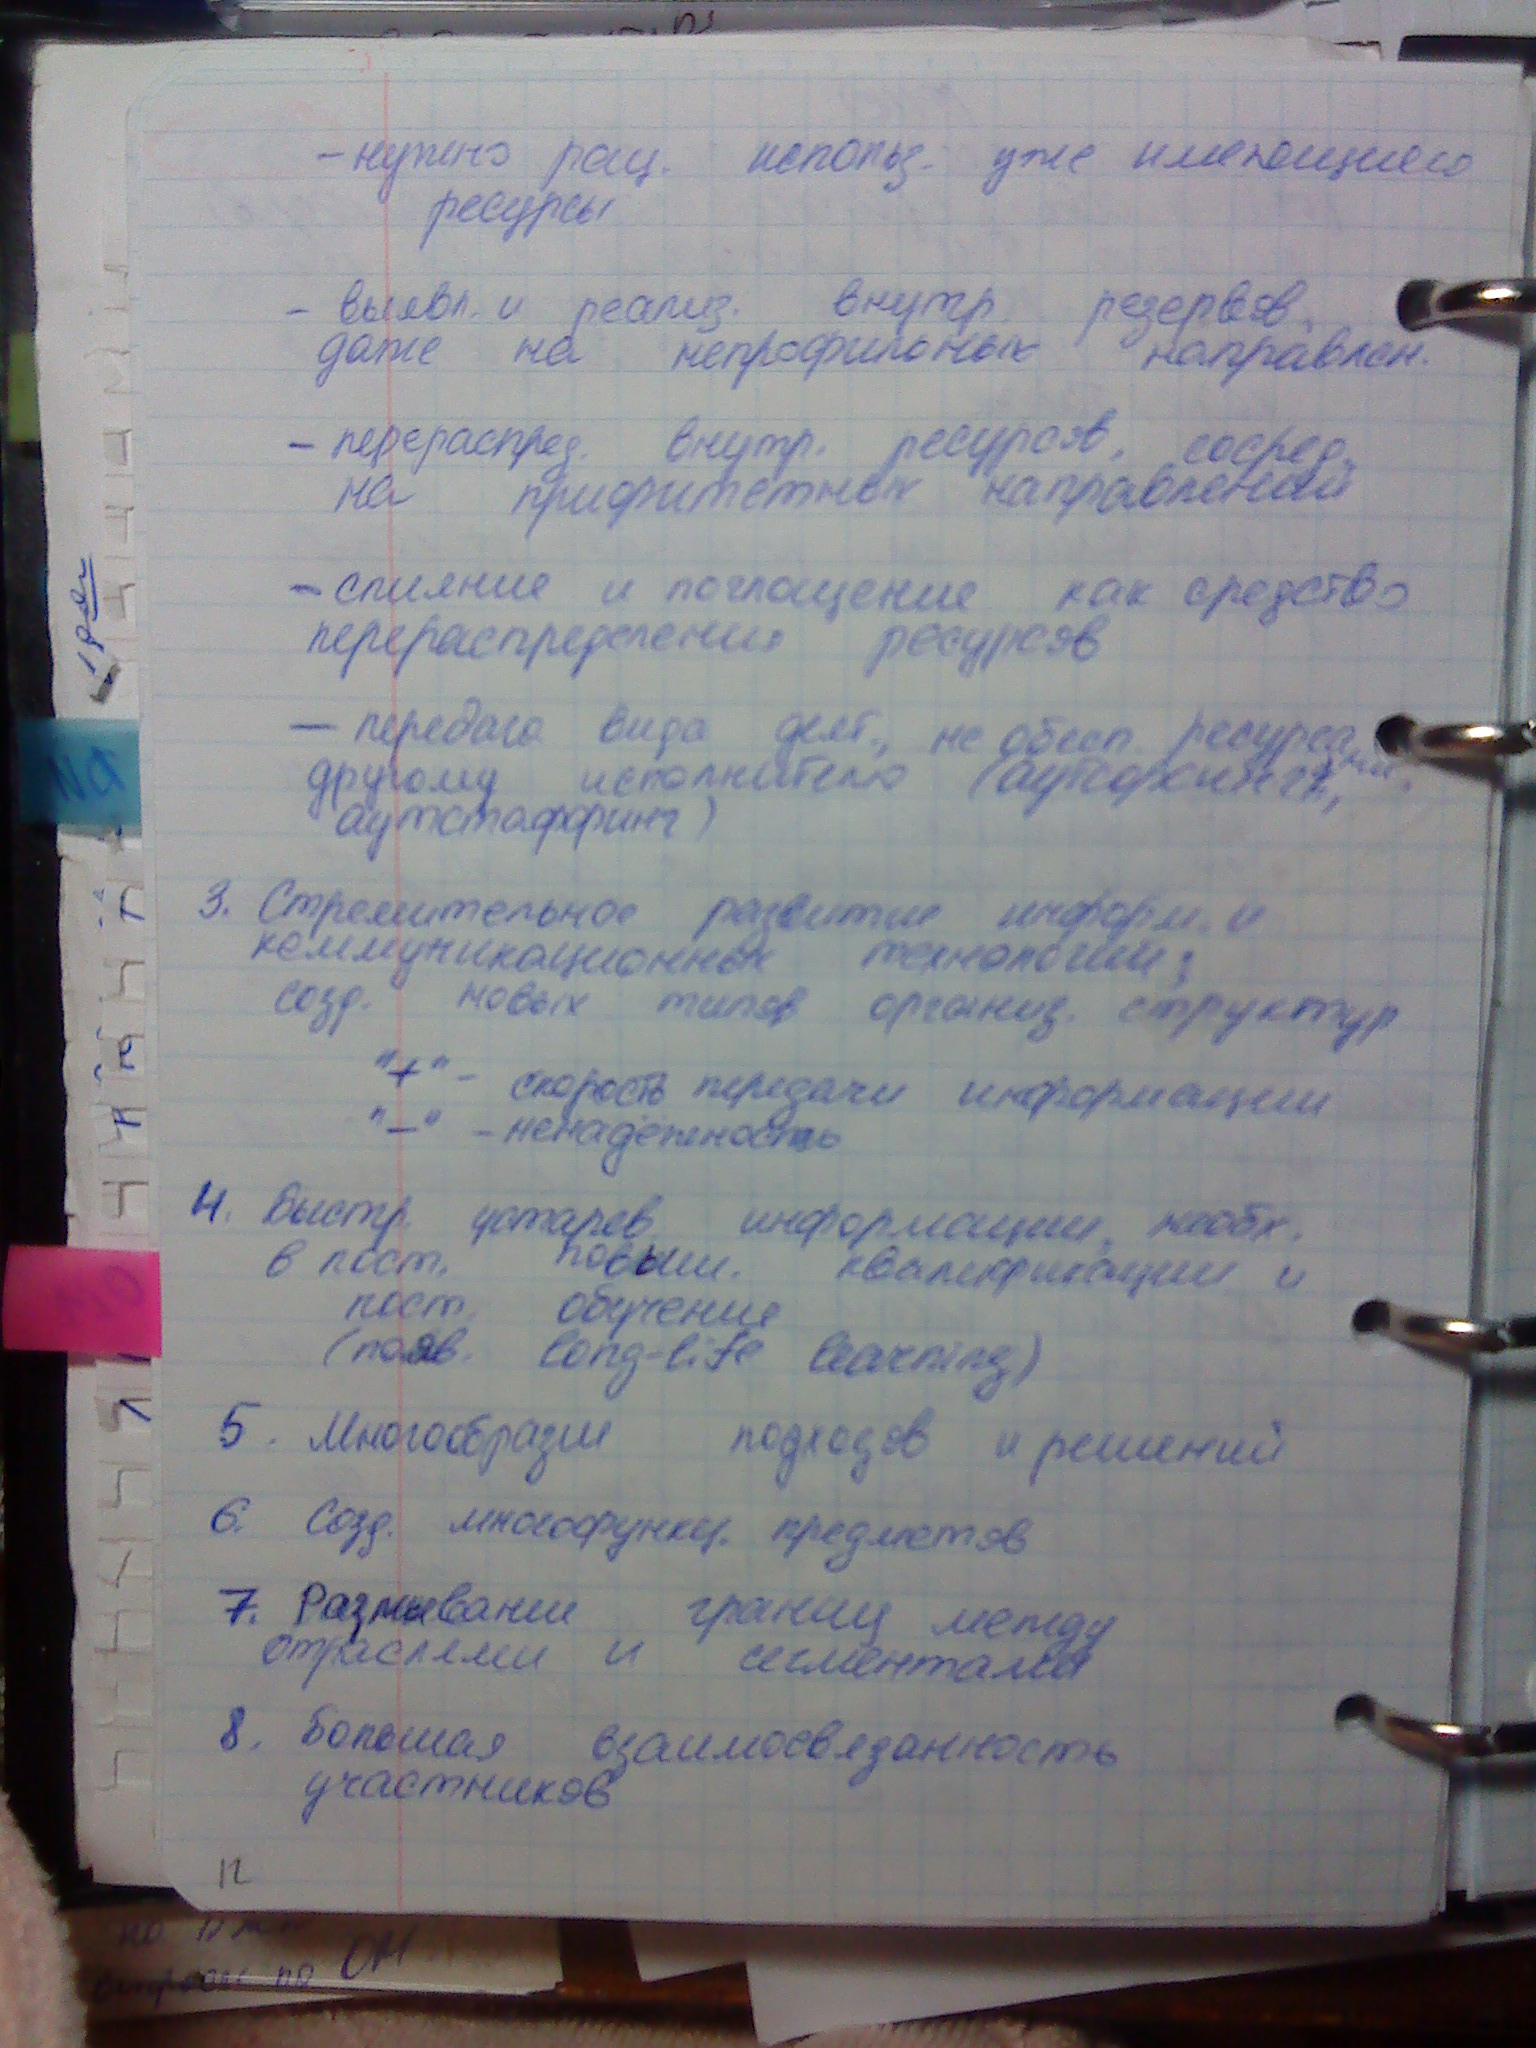 - нужно рац. использ. уже имеющиеся
ресурсы
- выявл. и реализ. внутр. резервов,
даже на непрофильных направлен.
- перераспред. внутр. ресурсов, сосред.
на приоритетных направлений
- слияние и поглощение как средство
перераспределения ресурсов
- передача вида деят., не обесп. ресурсами,
другому исполнителю (аутсорсинг,
аутстаффинг)
3. Стремительное развитие информ. и
коммуникационных технологий;
созд. новых типов организ. структур
"+" - скорость передачи информации
"-" - ненадёжность
4. Быстр. устарев. информации, необх.
в пост. повыш. квалификации и
пост. обучение
(появ. long-life learning)
5. Многообразие подходов и решений
6. Созд. многофункц. предметов
7. Размывание границ между
отраслями и сегментами
8. Большая взаимосвязанность
участников
12
по
вопросы по ОМ